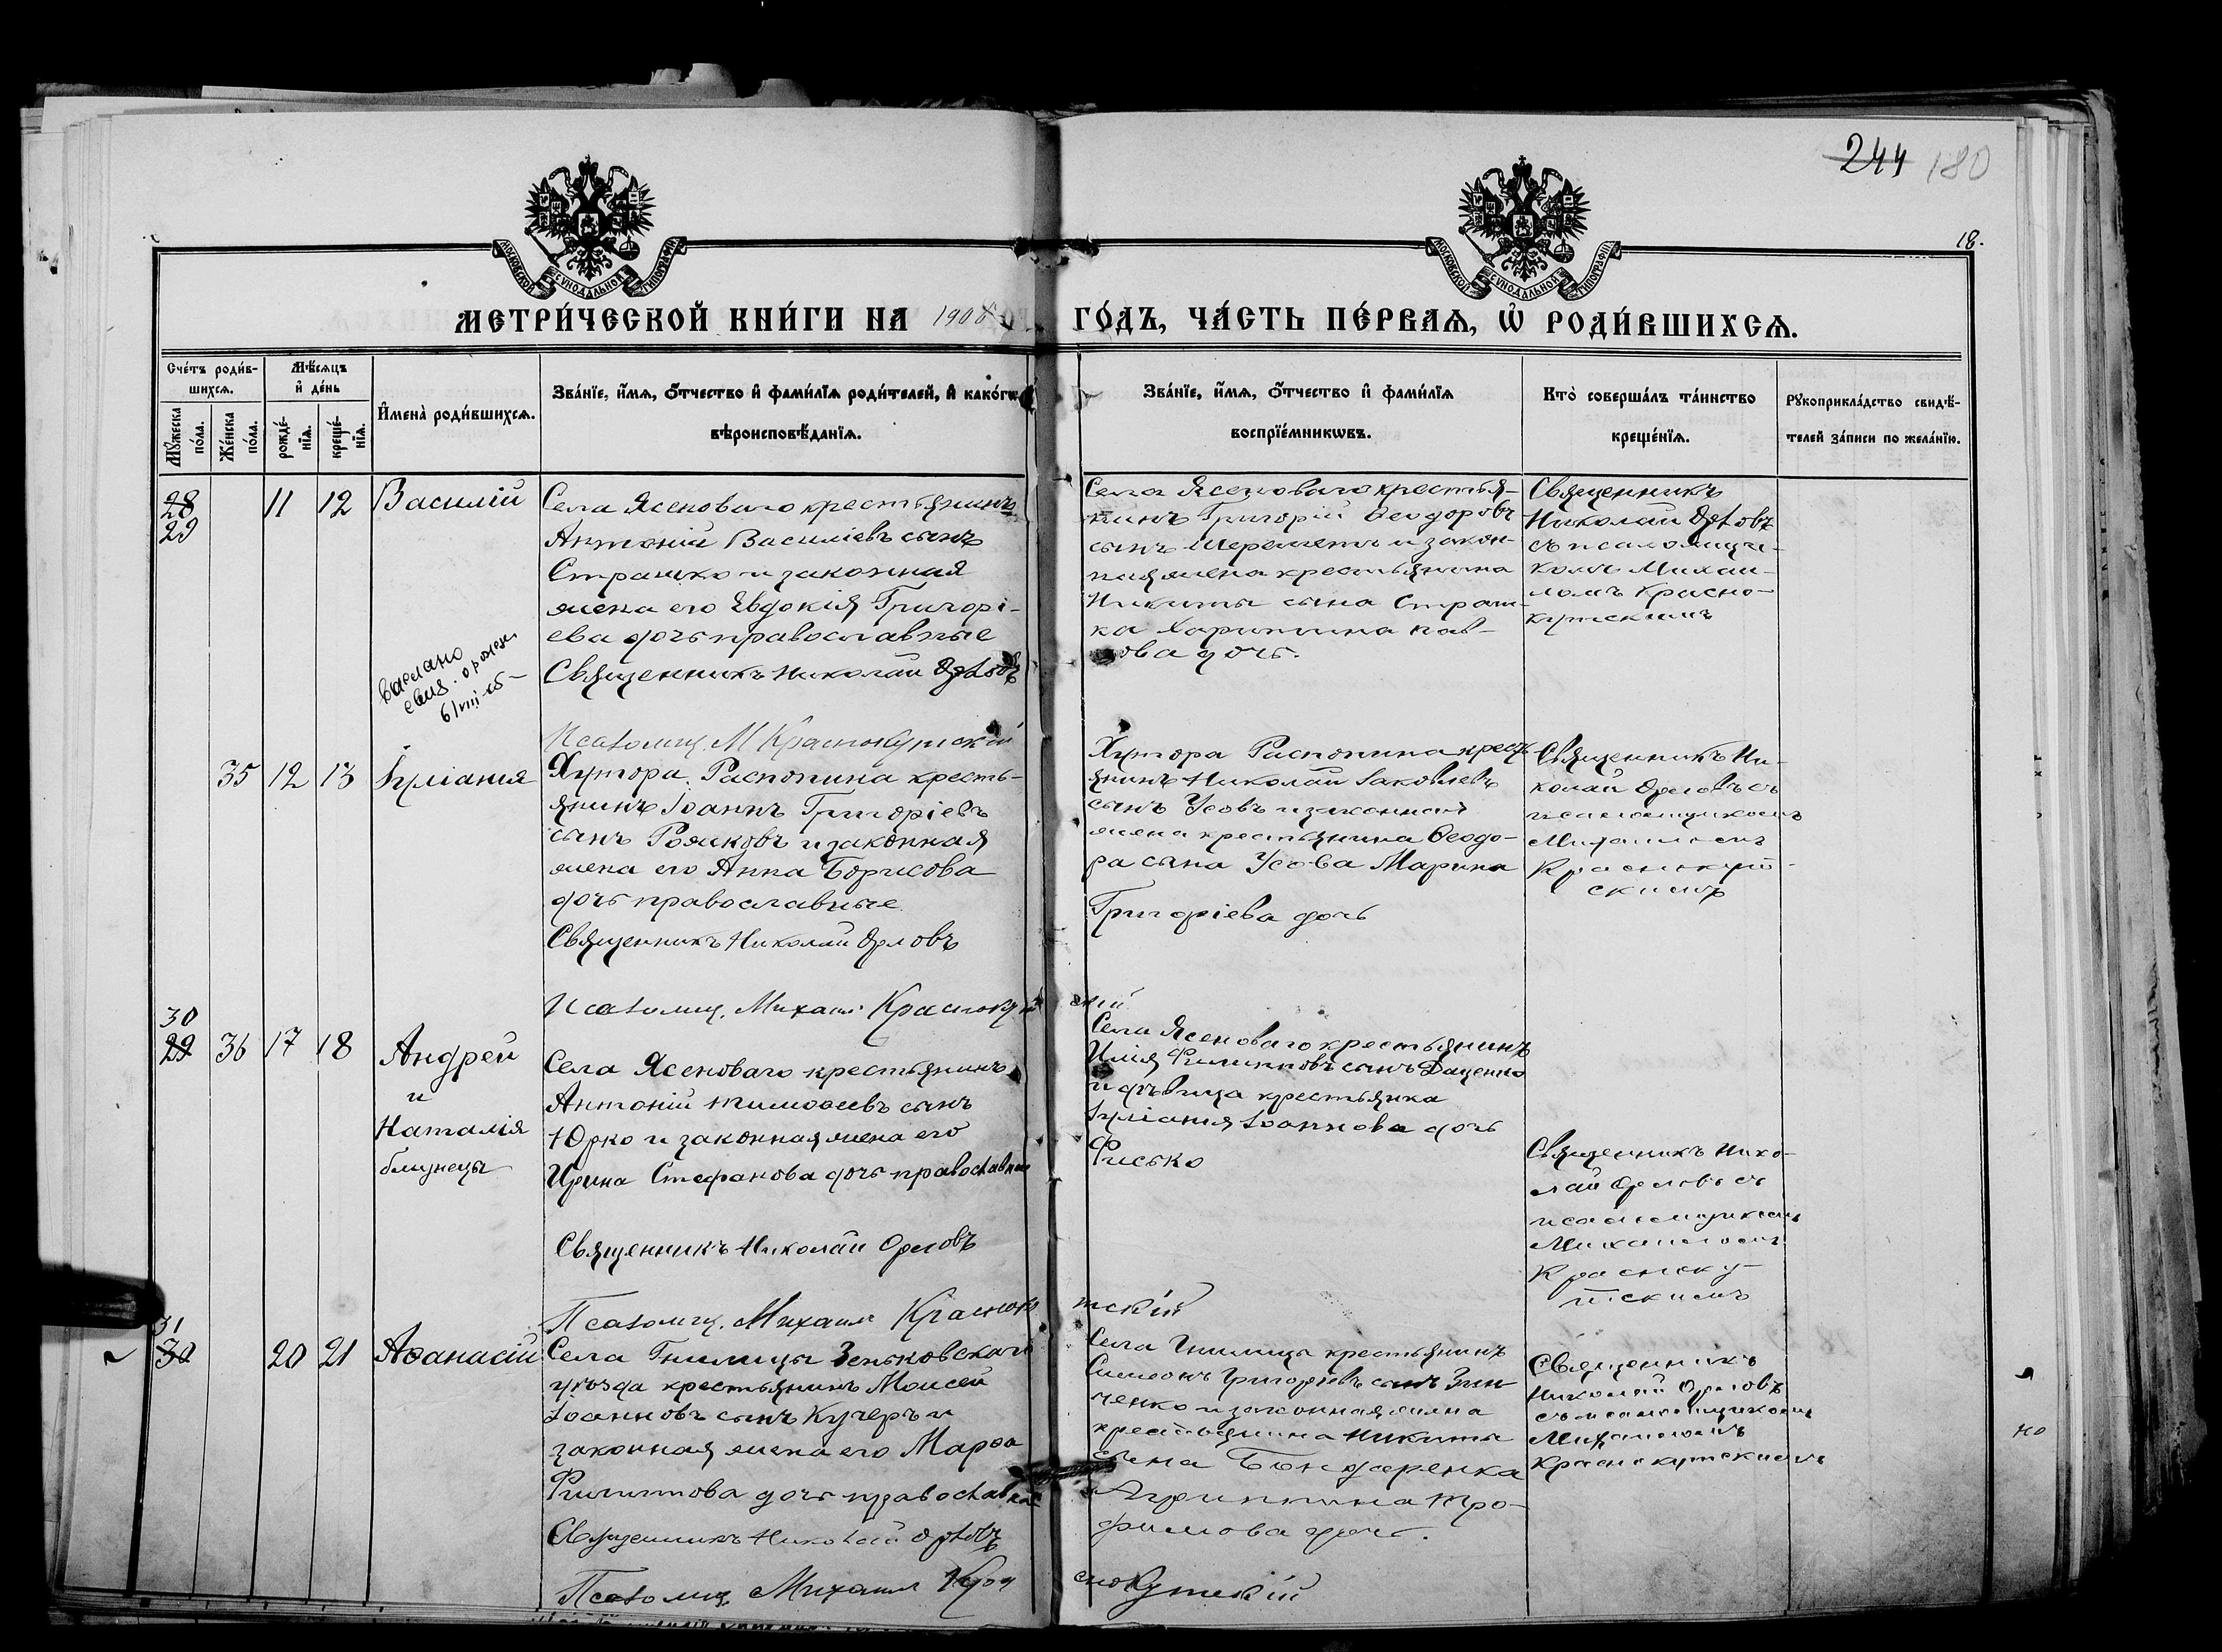 244 180
18.
МОСКОВСКОЙ СУНОДАЛЬНОЙ ТИПОГРАФІИ
МОСКОВСКОЙ СУНОДАЛЬНОЙ ТИПОГРАФІИ
МЕТРИ́ЧЕСКОЙ КНИ́ГИ НА 1908 ГО́ДЪ, ЧА́СТЬ ПЕ́РВАѦ, Ѽ РОДИ́ВШИХСѦ.
Сче́тъ роди́в-
шихсѧ.
Мѣ́сяцъ
и҆ де́нь
Мꙋ́жеска по́ла.
Же́нска по́ла.
рожде́-
нїѧ.
креще́-
нїѧ.
И҆мена̀ роди́вшихсѧ.
Зва́нїе, и҆́мѧ, ѻ҆́тчество и҆ фами́лїѧ роди́телей, и҆ како́гѡ
вѣроисповѣ́данїѧ.
Зва́нїе, и҆́мѧ, ѻ҆́тчество и҆ фами́лїѧ
воспрїе́мникѡвъ.
Кто̀ соверша́лъ та́инство
креще́нїѧ.
Рꙋкоприкла́дство свидѣ́-
телей за́писи по жела́нїю.
28
29
11 12 Василій
Села Ясеноваго крестьянинъ
Антоній Василіевъ сынъ
Страшко и законная
жена его Евдокія Григорі-
ева дочь православные
Священникъ Николай Орловъ
Псаломщ. М Краснокутскій
выдано
свид. о рожден.
Села Ясеноваго крестья-
нинъ Григорій Ѳеодоровъ
сынъ Шереметъ и закон-
ная жена крестьянина
Никиты сына Страш-
ка Харитина Пав-
лова дочь.
Священникъ
Николай Орловъ
съ псаломщи-
комъ Михаи-
ломъ Красно-
кутскимъ
35 12 13 Іуліанія
Хутора Распопина кресть-
янинъ Іоаннъ Григоріевъ
сынъ Рожковъ и законная
жена его Анна Борисова
дочь православные
Священникъ Николай Орловъ
Псаломщ. Михаил Краснокутскій
Хутора Распопина крест-
янинъ Николай Іаковлевъ
сынъ Усовъ и законная
жена крестьянина Ѳеодо-
ра сына Усова Марина
Григоріева дочь
Священникъ Ни-
колай Орловъ съ
псаломщикомъ
Михаиломъ
Краснокут-
скимъ
30
29 36 17 18 Андрей
и
Наталія
близнецы
Села Ясеноваго крестьянинъ
Антоній Тимоѳеевъ сынъ
Юрко и законная жена его
Ирина Стефанова дочь православные
Священникъ Николай Орловъ
Псаломщ. Михаил Краснокутскій
Села Ясеноваго крестьянинъ
Илія Филипповъ сынъ Даценко
и дѣвица крестьянка
Іуліанія Іоаннова дочь
Фисько
Священникъ Нико-
лай Орловъ съ
псаломщикомъ
Михаиломъ
Красноку-
тскимъ
31
30 20 21 Аѳанасій
Села Гнилицы Зеньковскаго
уѣзда крестьянинъ Моисей
Іоанновъ сынъ Кучеръ и
законная жена его Марѳа
Филиппова дочь православные
Священникъ Николай Орловъ
Псаломщ. Михаил Краснокутскій
Села Гнилицы крестьянинъ
Симеонъ Григоріевъ сынъ Зин-
ченко и законная жена
крестьянина Никиты
сына Бондаренка
Агриппина Тро-
фимова дочь.
Священникъ
Николай Орловъ
съ псаломщикомъ
Михаиломъ
Краснокутскимъ